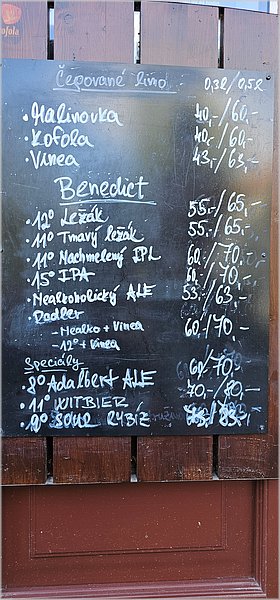 Kofola
Čepované limo 0,3l/0,5l
• Malinovka 40,-/60,-
• Kofola 40,-/60,-
• Vinea 43,-/63,-
Benedict
• 12° Ležák 55,-/65,-
• 11° Tmavý ležák 55,-/65,-
• 11° Nachmelený IPL 60,-/70,-
• 15° IPA 60,-/70,-
• Nealkoholický ALE 53,-/63,-
• Radler 60,-/70,-
- Nealko + Vinea
- 12° + Vinea
Speciály
• 8° Adalbert ALE 60,-/70,-
• 11° WITBIER 70,-/80,-
• 9° SOUR RYBÍZ /85,-